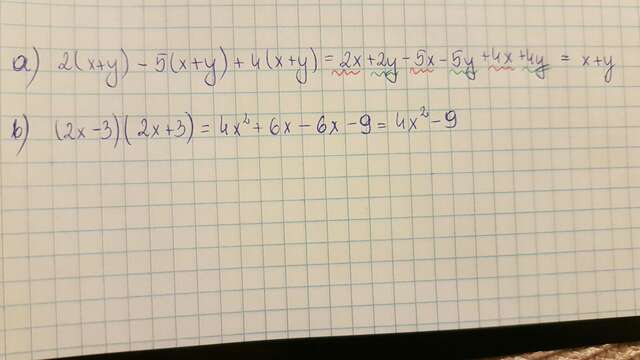 a) 2(x+y) - 5(x+y) + 4(x+y) = 2x + 2y - 5x - 5y + 4x + 4y = x+y
b) (2x-3)(2x+3) = 4x² + 6x - 6x - 9 = 4x² - 9